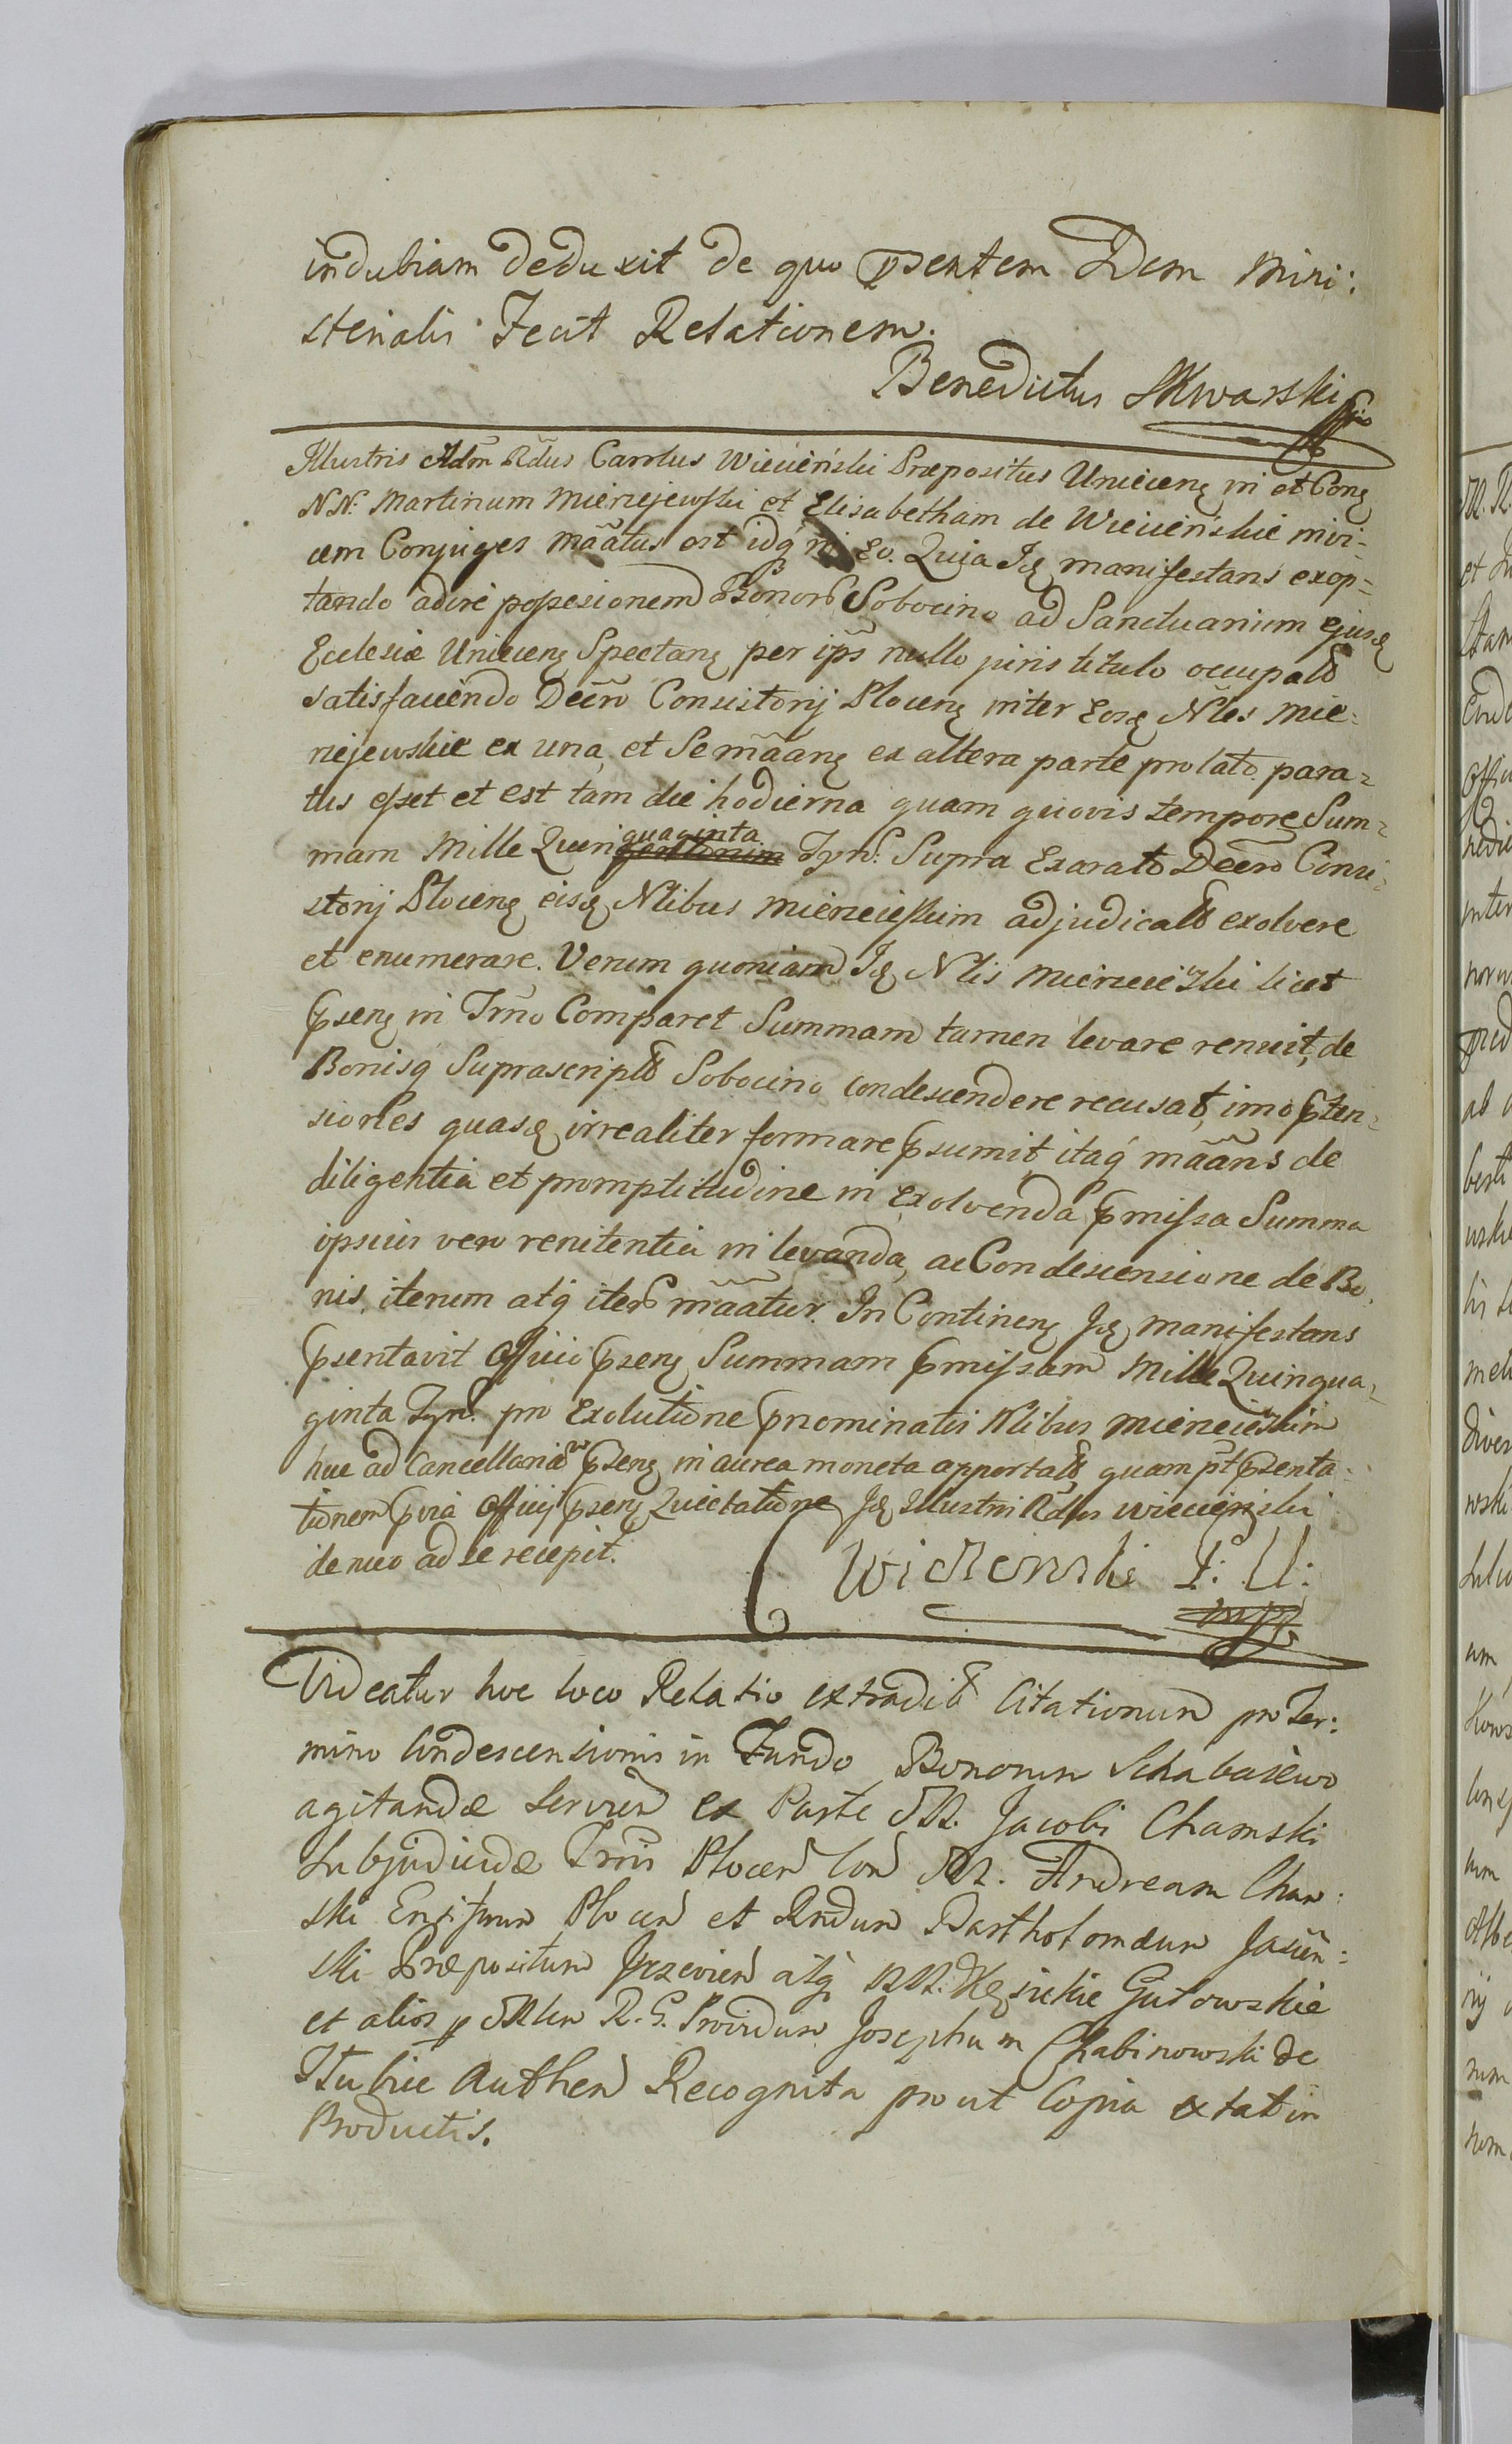 indubiam deduxit de quo psentem Idem Mini:
sterialis Fecit Relationem.
Benedictus Skwarski
Illustris Adm Rdus Carolus Wicieński Præpositus Unieceng in et Cong
NN: Martinum Mierzejewski et Elisabetham de Wicieńskie invi-
cem Conjuges mãatus est idq in Eo. Quia Id manifestans exop-
tando adire possesionem Bonor Sobocino ad Sanctuarium ejusd
Ecclesiæ Unieceng Spectang per ips nullo juris titulo occupat
satisfaciendo Decro Consistorij Ploceng inter Eosd Nles Mie-
rzejewskie ex una, et Se mãang ex altera parte prolato. para-
tus esset et est tam die hodierna quam quovis tempore Sum-
mam Mille Quinquaginta Tynf: Supra Exarato Decro Consi-
storij Ploceng eisd Nlibus Mierzeieskim adjudicat exolvere
et enumerare. Verum quoniam Id Nlis Mierzeieski licet
pseng in Trno Comparet Summam tamen levare renuit, de
Bonisq Suprascript Sobocino condescendere recusat, imo pten-
siones quasd irrealiter formare psumit, itaq mãans de
diligentia et promptitudine in Exolvenda pmissa Summa
ipsius vero renitentia in levanda, ac Condescensione de Bo-
nis, iterum atq iter mãatur. In Contineng Id manifestans
psentavit Officio pseng Summam pmissam Mille Quinqua-
ginta Tynf. pro Exolutione pnominatis Nlibus Mierzeieskim
huc ad Cancellariam pseng in aurea moneta apportat, quam pt psenta-
tionem pvia Officij pseng Quietatione Id Illustris Rdus Wicieński
denuo ad se recepit.
Wicienski P: U:
mpp
Videatur hoc loco Relatio extradit Citationum pro Ter:
mino Condescensionis in Fundo Bonorum Schabaiewo
agitandæ Servien ex Parte M. Jacobi Chamski
Subjudicis Trris Plocen Con M. Andream Cham:
ski Ensiferum Plocen et Rndum Bartholomæum Jasień:
ski Præpositum atq NN. Gutowskie
et alios p R. G. Providum Josephum Chabinowski de
Authen Recognita prout Copia extat in
Productis.